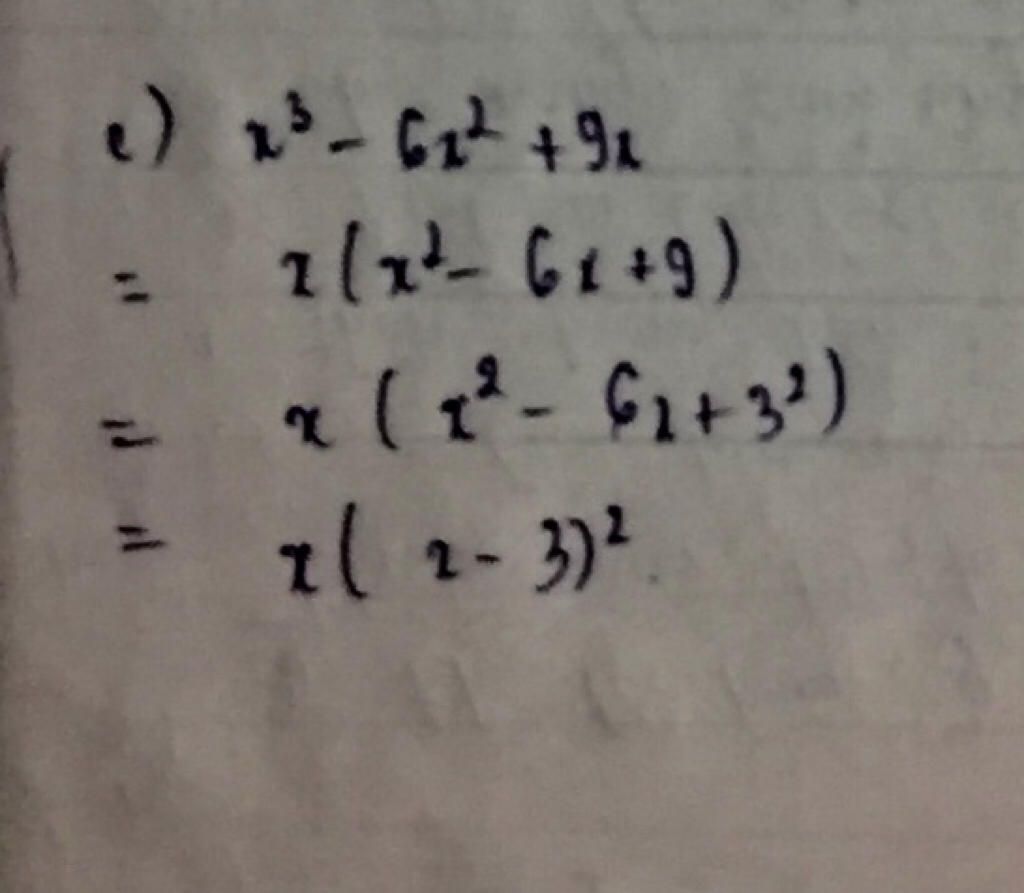 e) x³ - 6x² + 9x
= x(x² - 6x + 9)
= x(x² - 6x + 3²)
= x(x - 3)²